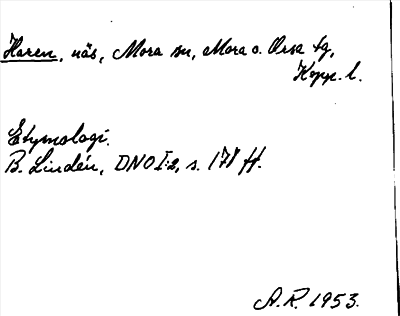 Haren, näs, Mora sn, Mora o. Orsa tg,
Kopp. l.
Etymologi.
B. Lindén, DNO I:2, s. 178 ff.
A.R. 1953.